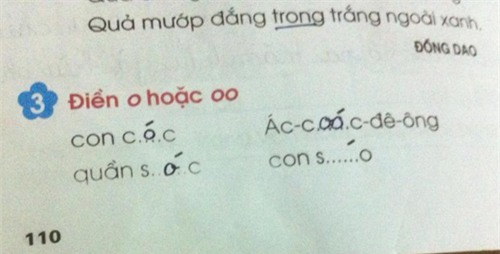 Quả mướp đắng trong trắng ngoài xanh.
ĐỒNG DAO
3 Điền o hoặc oo
con c.ó.c
Ác-c.oó.c-đê-ông
quần s..ó..c
con s......́o
110